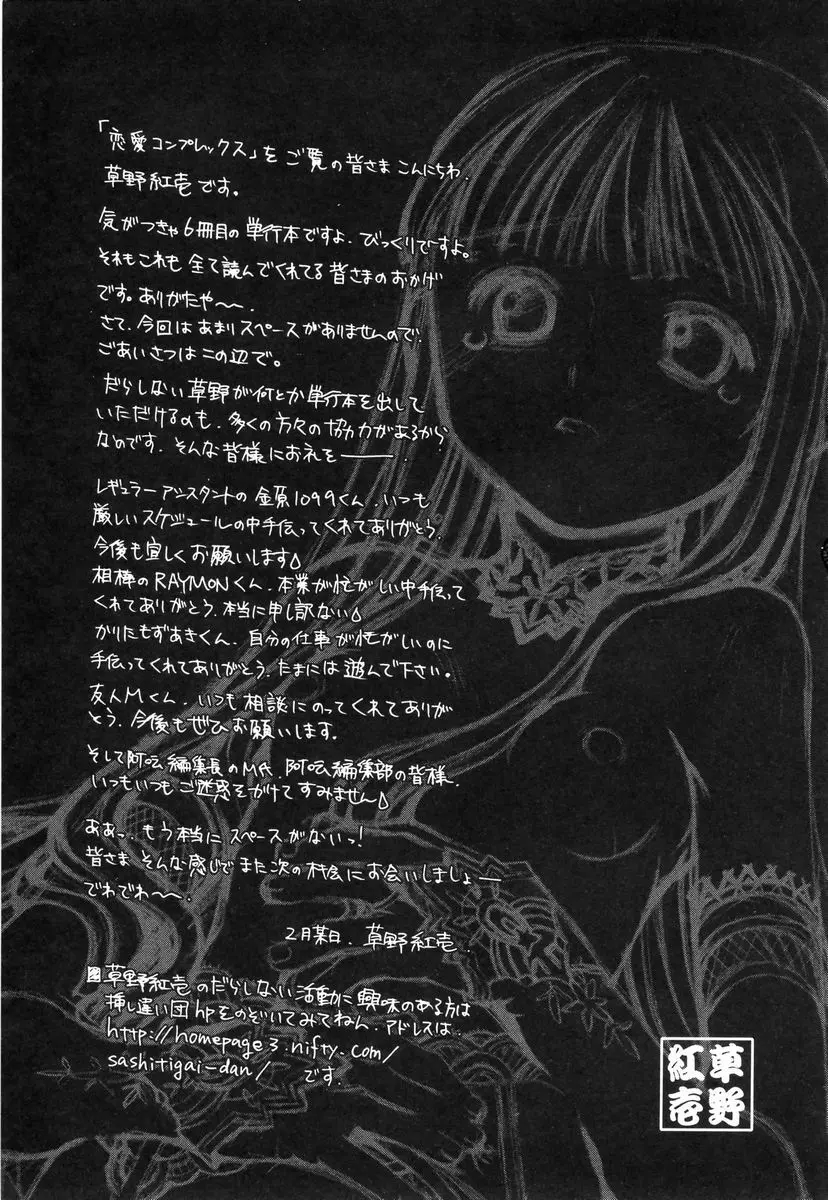 「恋愛コンプレックス」を ご覧の皆さま こんにちわ.
草野紅壱です。
気がつきゃ6冊目の単行本ですよ. びっくりですよ。
それもこれも 全て読んでくれてる皆さまのおかげ
です。ありがたや〜〜.
さて、今回はあまりスペースがありませんので、
ごあいさつはこの辺で。
だらしない草野が何とか単行本を出して
いただけるのも、多くの方々の協力があるから
なのです. そんな皆様にお礼を――.
レギュラーアシスタントの 金原1099くん、いつも
厳しいスケジュールの中手伝ってくれてありがとう.
今後も宜しくお願いします△
相棒のRAYMONくん、本業が忙がしい中手伝って
くれてありがとう. 本当に申し訳ない△
かりたもずあきくん、自分の仕事が忙がしいのに
手伝ってくれてありがとう. たまには遊んで下さい。
友人Mくん、いつも相談にのってくれてありが
とう. 今後もぜひお願いします。
そして阿吽編集長のM氏、阿吽編集部の皆様、
いつもいつもご迷惑をかけてすみません△
ああっ、もう本当にスペースがないっ!
皆さま そんな感じで また次の機会にお会いしましょー
でわでわ〜〜.
2月某日、草野紅壱.
草野紅壱のだらしない活動に興味のある方は
挿し違い団hpをのぞいてみてねん. アドレスは.
http://homepage3.nifty.com/
sashitigai-dan/ です.
草野
紅壱